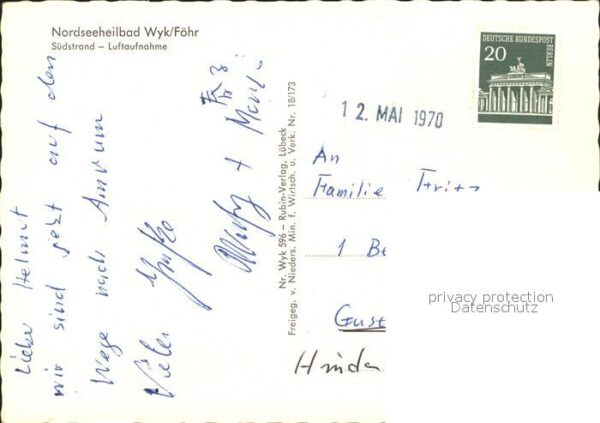 Nordseeheilbad Wyk/Föhr
Südstrand – Luftaufnahme
Lieber Helmut
wir sind jetzt auf dem
Wege nach Amrum
Viele
Nr. Wyk 596 – Rubin-Verlag, Lübeck
Freigeg. v. Nieders. Min. f. Wirtsch. u. Verk. Nr. 18/173
DEUTSCHE BUNDESPOST
BERLIN
20
12. MAI 1970
An
Familie Fritz
1 Be
Gust
Hinde
privacy protection
Datenschutz